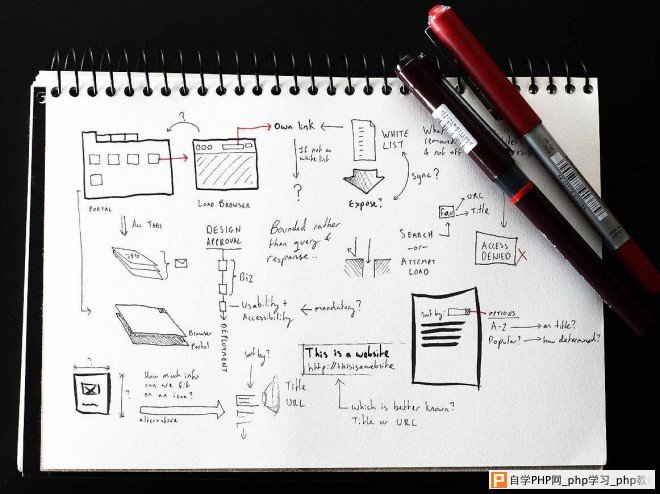 ?
Own link
WHITE
LIST
What
remove
& not off
If not on
white list
?
sync?
Expose?
PORTAL
LOAD BROWSER
Fav
URL
Title
ALL TABS
DESIGN
APPROVAL
Bounded rather
than query &
response..
SEARCH
-or-
ATTEMPT
LOAD
ACCESS
DENIED
X
Biz
Usability +
Accessibility
mandatory?
DEPLOYMENT
Browser
Portal
Sort by:
OPTIONS
A-Z
on title?
Popular?
how determined?
?
?
How much info
can we fit
on an icon?
alternative
Sort by?
Title
URL
This is a website
http://thisisawebsite
Which is better known?
Title or URL
自学PHP网_php学习_php教